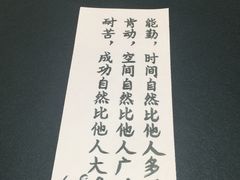 能勤，时间自然比他人多
肯动，空间自然比他人广
耐苦，成功自然比他人大